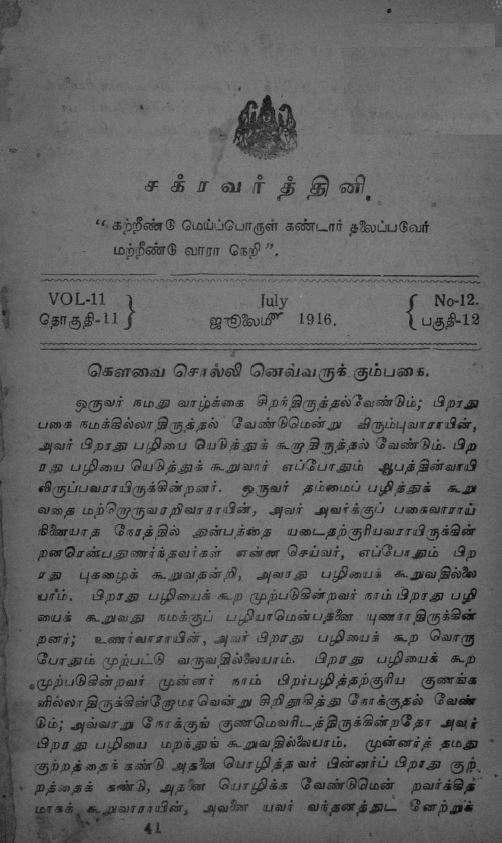 சக்ரவர்த்தினி.
“கற்றீண்டு மெய்ப்பொருள் கண்டார் தலைப்படுவேர்
மற்றீண்டு வாரா நெறி”.
VOL-11 July No-12.
தொகுதி-11 ஜூலைமீ 1916. பகுதி-12
கௌவை சொல்லி னெவ்வருக் கும்பகை.
ஒருவர் நமது வாழ்க்கை சிறந்திருத்தல்வேண்டும்; பிறரது
பகை நமக்கில்லாதிருத்தல் வேண்டுமென்று விரும்புவாராயின்,
அவர் பிறரது பழியை யெடுத்துக் கூறாதிருத்தல் வேண்டும். பிற
ரது பழியை யெடுத்துக் கூறுவார் எப்போதும் ஆபத்தின்வாயி
லிருப்பவராயிருக்கின்றனர். ஒருவர் தம்மைப் பழித்துக் கூறு
வதை மற்றொருவரறிவாராயின், அவர் அவர்க்குப் பகைவாராய்
நினையாத நேரத்தில் துன்பத்தை யடைதற்குரியவராயிருக்கின்
றனரென்பதுணர்ந்தவர்கள் என்ன செய்வர், எப்போதும் பிற
ரது புகழைக் கூறுவதன்றி, அவரது பழியைக் கூறுவதில்லை
யாம். பிறரது பழியைக் கூற முற்படுகின்றவர் நாம் பிறரது பழி
யைக் கூறுவது நமக்குப் பழியாமென்பதனை யுணராதிருக்கின்
றனர்; உணர்வாராயின், அவர் பிறரது பழியைக் கூற வொரு
போதும் முற்பட்டு வருவதில்லையாம். பிறரது பழியைக் கூற
முற்படுகின்றவர் முன்னர் நாம் பிறர்பழித்தற்குரிய குணங்க
ளில்லாதிருக்கின்றோமாவென்று சிறிதூகித்து நோக்குதல் வேண்
டும்; அவ்வாறு நோக்குங் குணமெவரிடத்திருக்கின்றதோ அவர்
பிறரது பழியை மறந்துங் கூறுவதில்லையாம். முன்னர்த் தமது
குற்றத்தைக் கண்டு அதனை யொழித்தவர் பின்னர்ப் பிறரது குற்
றத்தைக் கண்டு, அதனை யொழிக்க வேண்டுமென் றவர்க்கித
மாகக் கூறுவாராயின், அவனை யவர் வந்தனத்துட னேற்றுக்
41